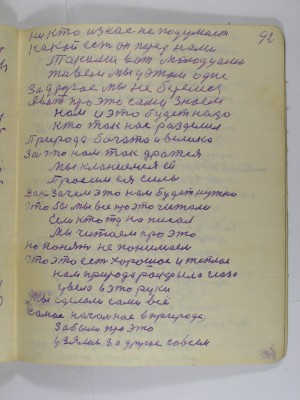 92
никто из нас не подумает
Какой есть он перед нами
Такими вот молодцами
живем мы у этом одне
За другое мы не беремся
про это сами знаем
нам и это будет надо
кто так нас разделил
Природа богато и велико
За что нам так дратся
мы кланяемся ей
Просим ея силы
Зачем это нам будет нужно
Что бы мы все про это читали
Если кто то написал
Мы читаем про это
но понять не понимаем
Что это есть хорошое и теплое
нам природа раскрыла глаза
увела в это руки
Мы сделали сами всё
Самое начальное в природе,
Забыли про это
узялись за другое совсем